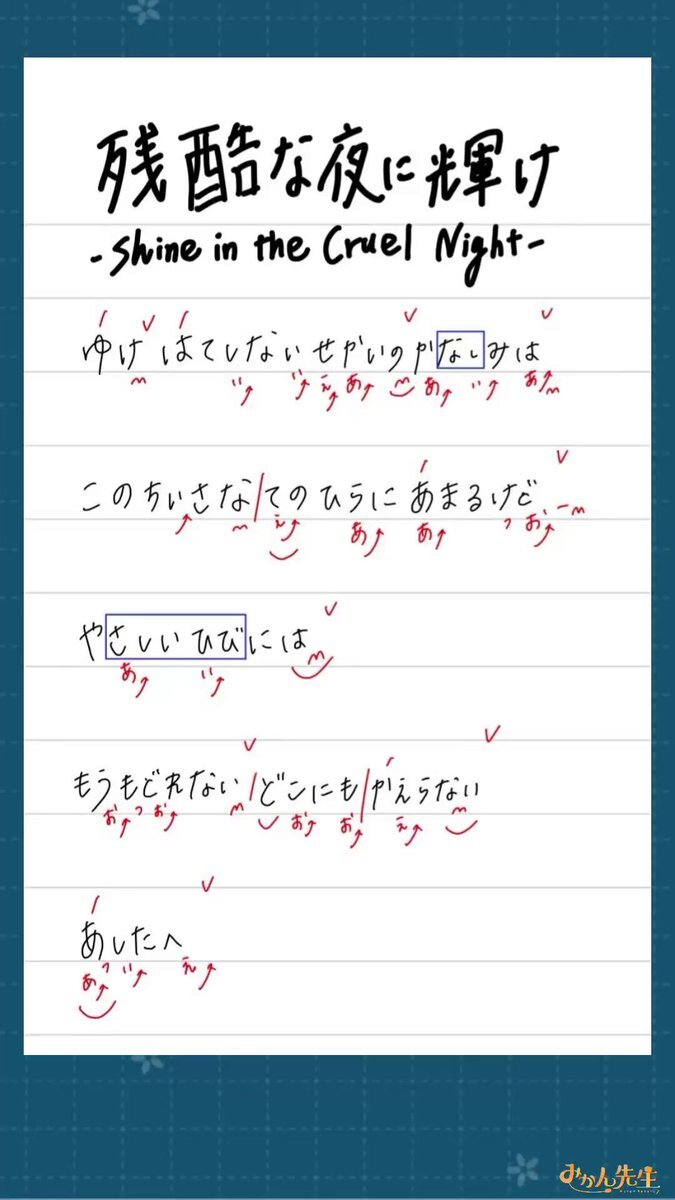 残酷な夜に輝け
-Shine in the Cruel Night-
ゆけ はてしないせかいのかなしみは
い い え あ あ い あ
このちいさな/てのひらにあまるけど
え あ あ っ お
やさしいひびにには
あ い
もうもどれない/どこにも/かえらない
お っ お お お え
あしたへ
あ っ い え
みかん先生